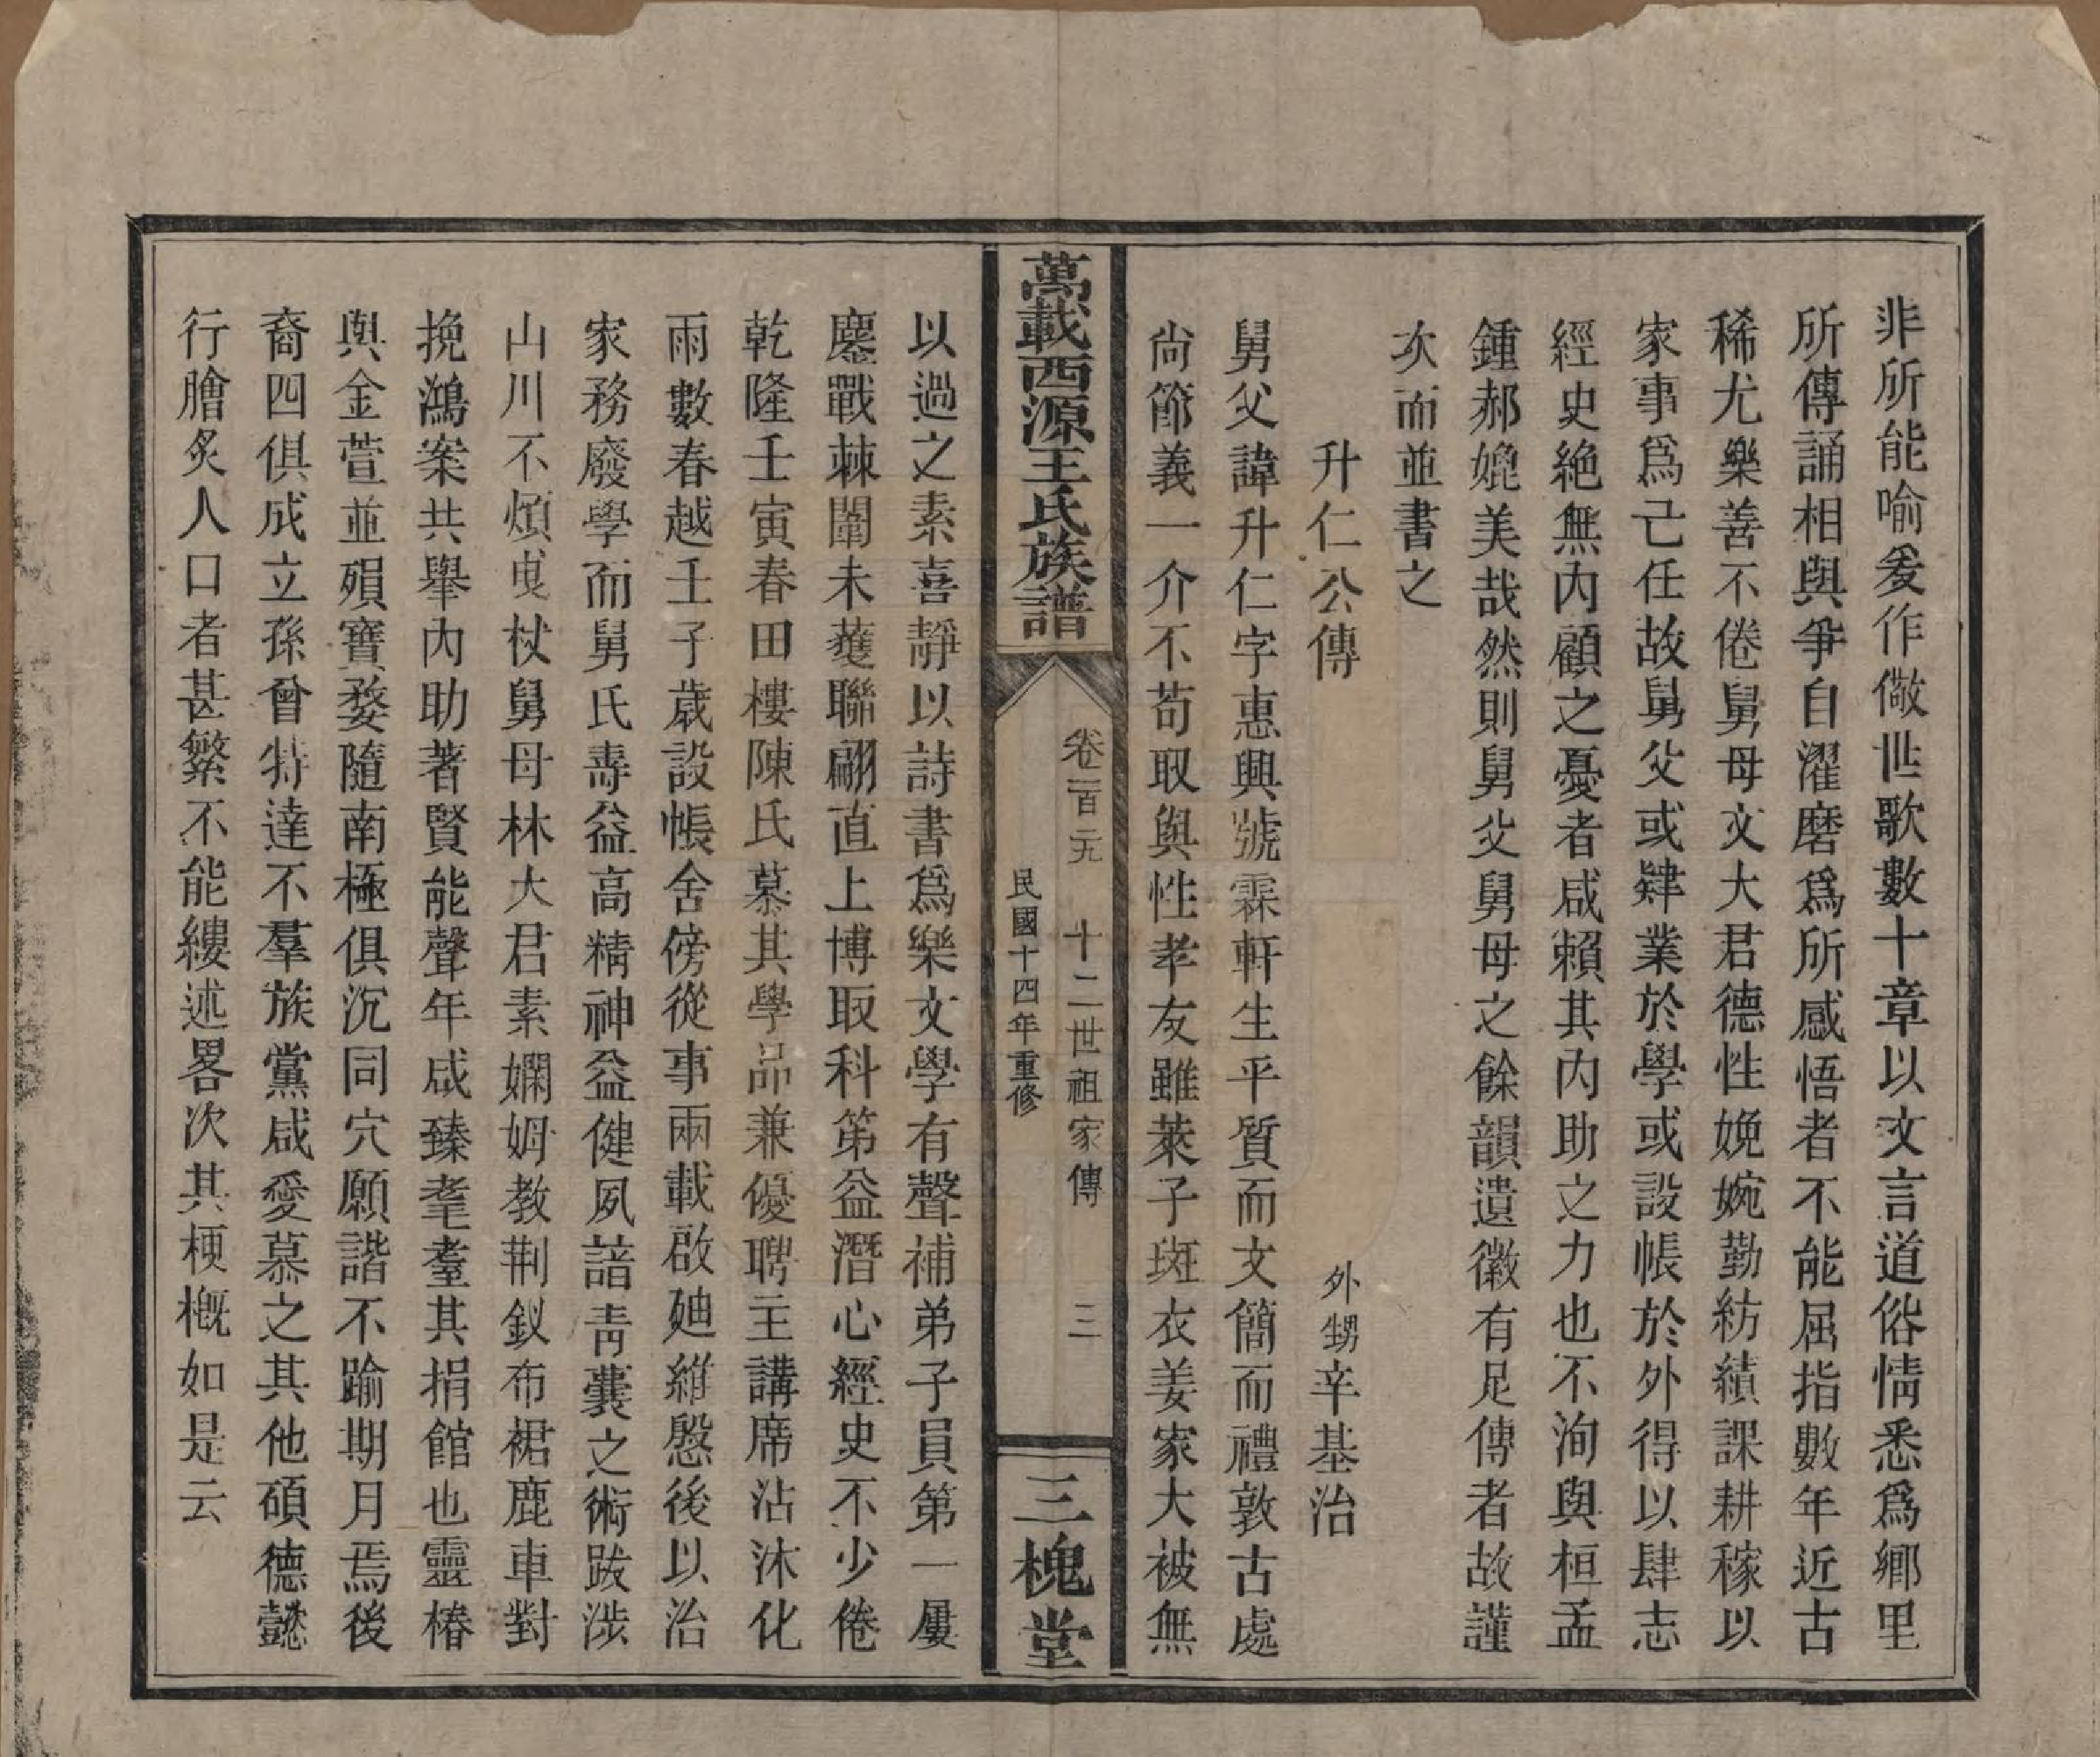 非所能喻爰作儆世歌數十章以文言道俗情悉爲鄉里
所傳誦相與爭自濯磨爲所感悟者不能屈指數年近古
稀尤樂善不倦舅母文大君德性娩婉勤紡績課耕稼以
家事爲己任故舅父或肄業於學或設帳於外得以肆志
經史絶無內顧之憂者咸賴其內助之力也不洵與桓孟
鍾郝媲美哉然則舅父舅母之餘韻遺徽有足傳者故謹
次而並書之
升仁公傳
外甥辛基治
舅父諱升仁字惠興號霖軒生平質而文簡而禮敦古處
尙節義一介不苟取與性孝友雖萊子斑衣姜家大被無
萬載西源王氏族譜
卷二百元 十二世祖家傳 三
民國十四年重修
三槐堂
以過之素喜靜以詩書爲樂文學有聲補弟子員第一屢
鏖戰棘闈未蓌聯翩直上博取科第益潛心經史不少倦
乾隆壬寅春田樓陳氏慕其學品兼優聘主講席沾沐化
雨數春越壬子歲設帳舍傍從事兩載啟廸維慇後以治
家務廢學而舅氏壽益高精神益健夙諳靑囊之術跋涉
山川不煩曳杖舅母林大君素嫻姆教荆釵布裙鹿車對
挽鴻案共舉內助著賢能聲年咸臻耄耋其捐館也靈椿
與金萱並殞寶婺隨南極俱沉同穴願諧不踰期月焉後
裔四俱成立孫曾特達不羣族黨咸愛慕之其他碩德懿
行膾炙人口者甚繁不能縷述畧次其梗槪如是云